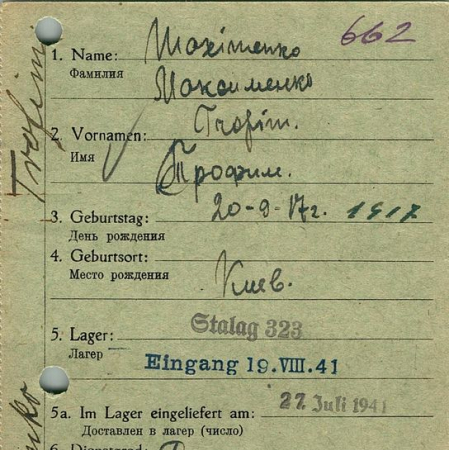 662
1. Name: Maximenko
Фамилия Максименко
2. Vornamen: Trofim.
Имя Трофим.
3. Geburtstag: 20-9-17г. 1917
День рождения
4. Geburtsort:
Место рождения Киев.
5. Lager: Stalag 323
Лагер Eingang 19.VIII.41
5a. Im Lager eingeliefert am: 27 Juli 1941
Доставлен в лагер (число)
6. Dienstgrad:
Trofim
nko